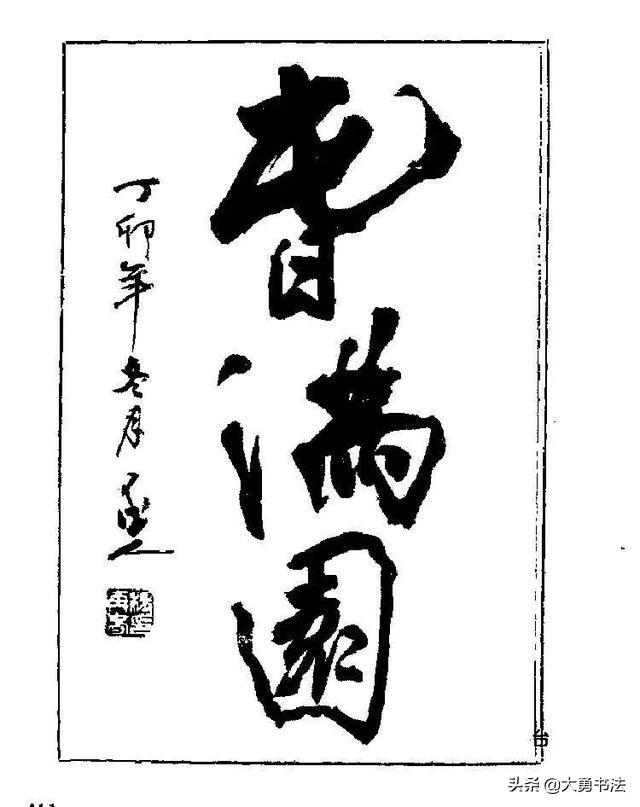 春滿園
丁卯年冬月
台
头条 @大勇书法